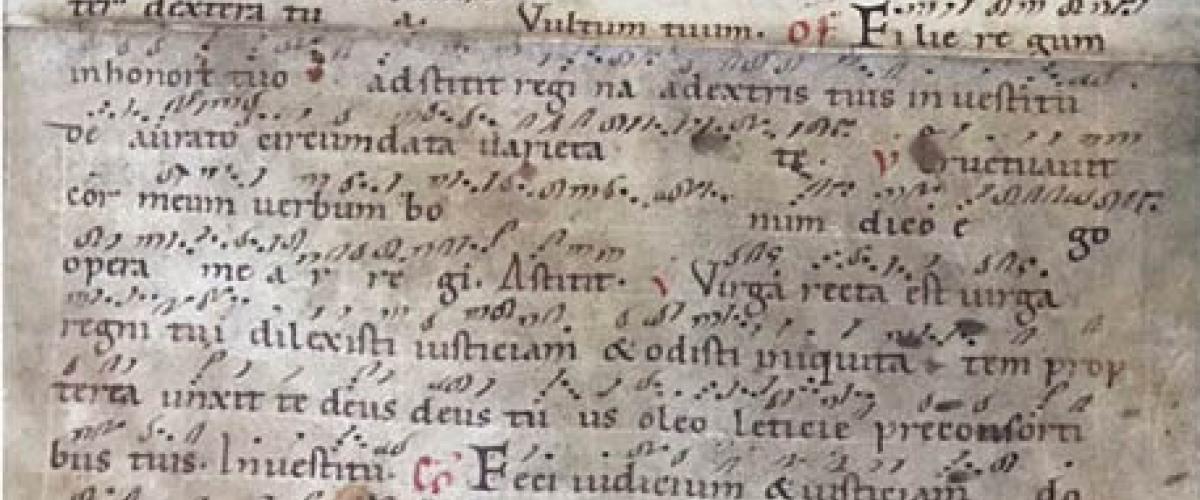 dextera tu a. Vultum tuum. of Filie re gum
inhonore tuo adstitit regi na adextris tuis in uestitu
de aurato circumdata uarieta te. v Eructuauit
cor meum uerbum bo num dico e go
opera me a r re gi. Astitit. v Virga recta est uirga
regni tui dilexisti iusticiam & odisti iniquita tem prop
terea unxit te deus deus tu us oleo leticie preconsorti
bus tuis. Inuestitu. Co Feci iudicium & iusticiam do